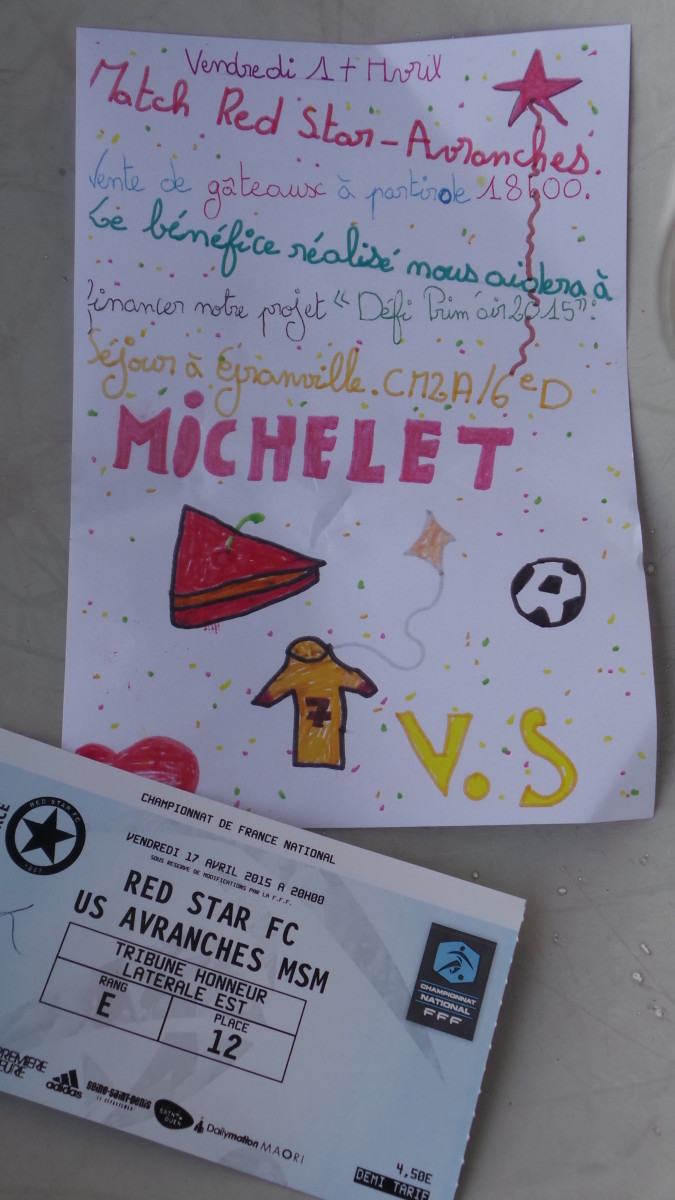 Vendredi 17 Avril
Match Red Star-Avranches.
Vente de gâteaux à partir de 18h00.
Le bénéfice réalisé nous aidera à
financer notre projet "Défi Prim'air 2015":
Séjour à Granville. CM2A/6eD
MICHELET
7
V.S
CHAMPIONNAT DE FRANCE NATIONAL
RED STAR FC
VENDREDI 17 AVRIL 2015 A 20H00
SOUS RESERVE DE MODIFICATIONS PAR LA F.F.F.
RED STAR FC
US AVRANCHES MSM
TRIBUNE HONNEUR
LATERALE EST
RANG
E
PLACE
12
CHAMPIONNAT
NATIONAL
FFF
adidas
seine-saint-denis
SAINT OUEN
Dailymotion
MAORI
4,50E
DEMI TARIF